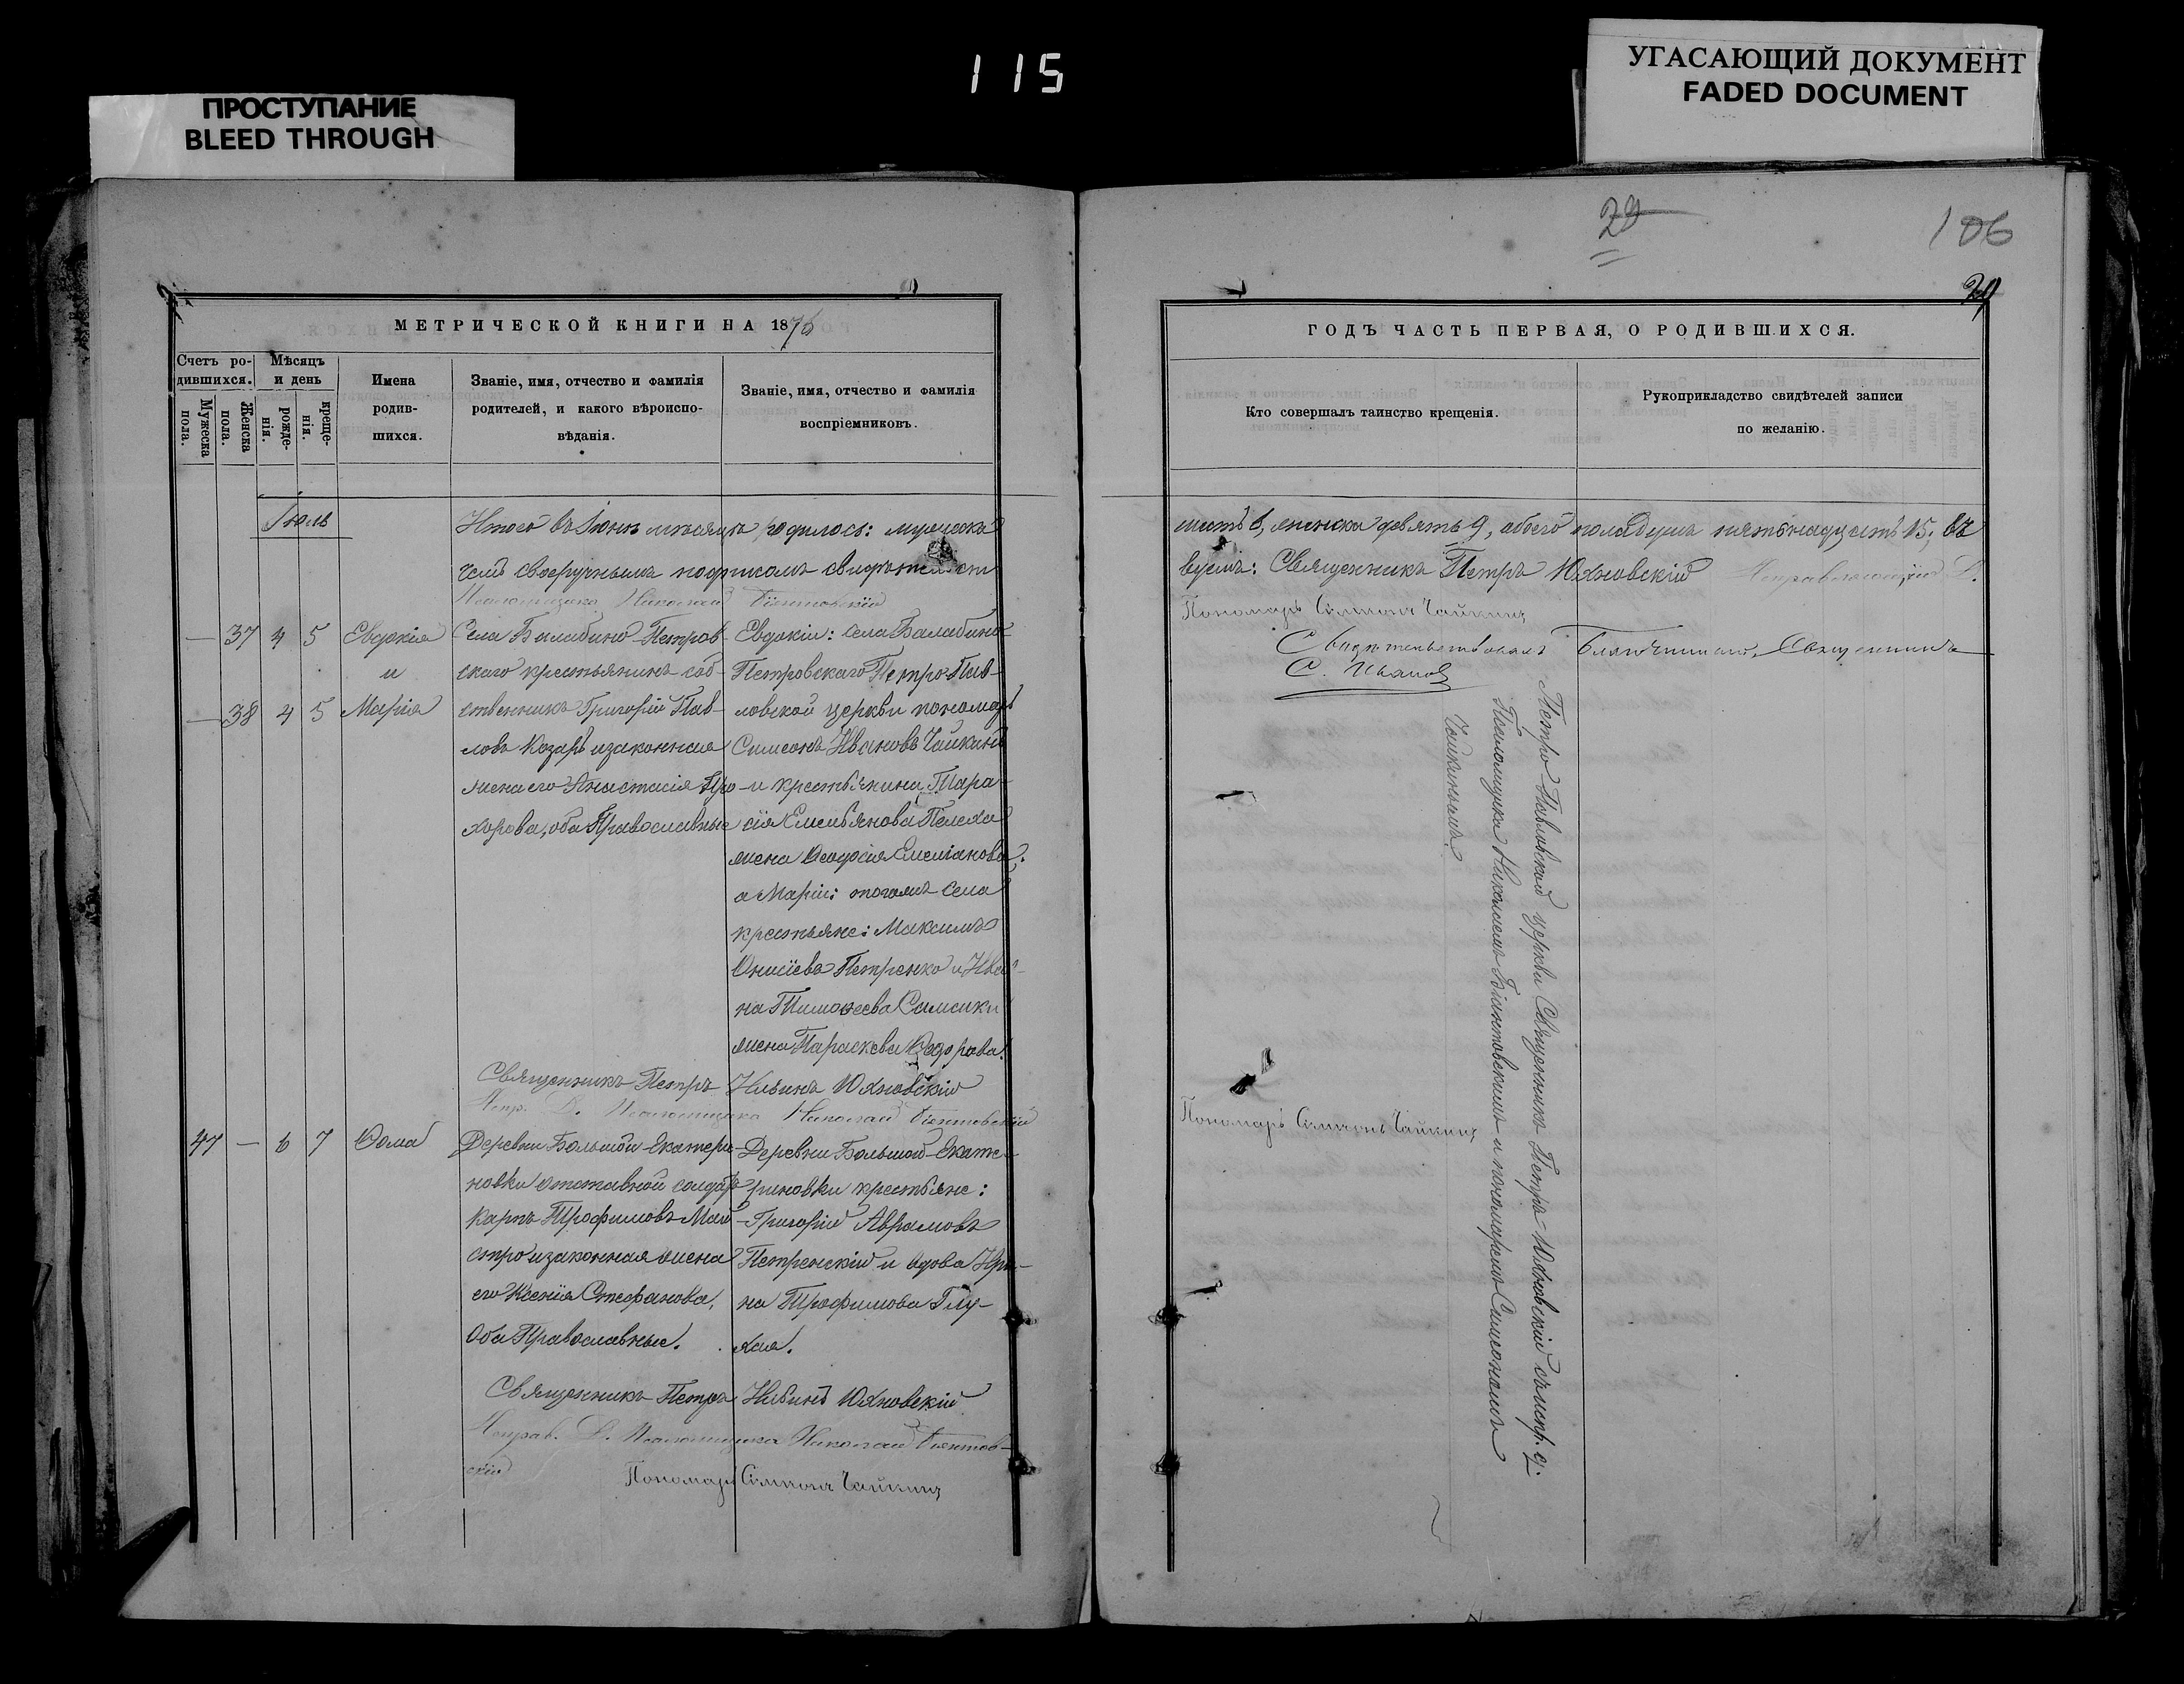 115
ПРОСТУПАНИЕ
BLEED THROUGH
УГАСАЮЩИЙ ДОКУМЕНТ
FADED DOCUMENT
29
106
29
МЕТРИЧЕСКОЙ КНИГИ НА 1876
Счетъ ро-
дившихся.
Мужеска
пола.
Женска
пола.
Мѣсяцъ
и день
рожде-
нія.
креще-
нія.
Имена
родив-
шихся.
Званіе, имя, отчество и фамилія
родителей, и какого вѣроиспо-
вѣданія.
Званіе, имя, отчество и фамилія
воспріемниковъ.
Іюль
Итого въ Іюнѣ мѣсяцѣ родилось: мужска
чемъ своеручнымъ подписомъ свидѣтельст
Псаломщика Николай
— 37 4 5 Евдокія
и
— 38 4 5 Марія
Села Балабино-Петров-
скаго крестьянинъ соб-
ственникъ Григорій Пав-
ловъ Козаръ и законная
жена его Анастасія Про-
хорова, оба Православные
Евдокіи: села Балабино-
Петровскаго Петро-Пав-
ловской церкви пономарь
Симеонъ Ивановъ Чайкинъ
и крестьянина Тара-
сія Емельянова Пелеха
жена Ѳеодосія Емеліанова;
а Маріи: тогожъ села
крестьяне: Максимъ
Онисіевъ Петренко и Ива-
на Тимоѳеева Самсики
жена Параскева Ѳедорова.
Священникъ Петръ Ильинъ Юхновскій
Испр. Д. Псаломщика Николай
47 — 6 7 Ѳома
Деревни Большой-Екатери-
новки отставной солдатъ
Карпъ Трофимовъ Май-
стро и законная жена
его Ксенія Стефанова,
Оба Православные.
Деревни Большой-Екате-
риновки крестьяне:
Григорій Аврамовъ
Петренскій и вдова Ири-
на Трофимова Глу-
хая.
Священникъ Петръ Ильинъ Юхновскій
Исправ. Д. Псаломщика Николай
скій
Пономарь Симеонъ Чайкинъ
ГОДЪ ЧАСТЬ ПЕРВАЯ, О РОДИВШИХСЯ.
Кто совершалъ таинство крещенія.
Рукоприкладство свидѣтелей записи
по желанію.
шесть 6, женска девять 9, обоего пола душъ пятьнадцать 15; въ
вуемъ: Священникъ Петръ Юхновскій Исправляющій Д.
Пономарь Симеонъ Чайкинъ
Свидѣтельствовалъ Благочинный, Священникъ
С. Иванов
Петро-Павловской церкви Священникъ Петръ Юхновскій съ испр. д.
Псаломщика Николаемъ и пономаремъ Симеономъ
Чайкинымъ
Пономарь Симеонъ Чайкинъ